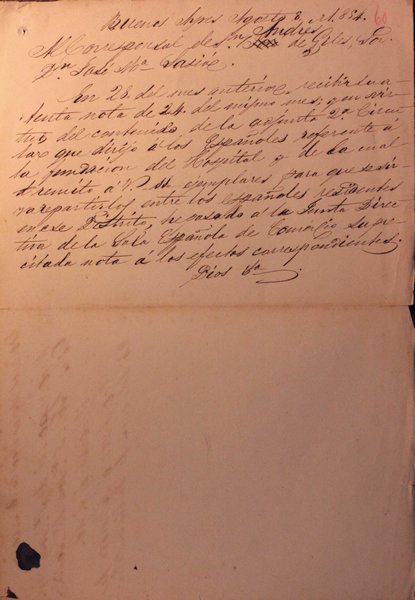 Buenos Ayres Agosto 3, de 1.854. 60
Al Corresponsal de Sn. Andrés de Giles, Sor.
Dn. José Ma.
En 28 del mes anterior, recibi su a-
tenta nota de 24 del mismo mes; y en vir-
tud del contenido, de la adjunta 2a. Circu-
lar que dirijo á los Españoles referente á
la fundacion del Hospital y de la cual
remito á V. ejemplares, para que se sir-
va repartirlos entre los españoles residentes
en ese Distrito, he pasado á la Junta Direc-
tiva de la Sala Española de Comercio su pre-
citada nota á los efectos correspondientes.
Dios &a.